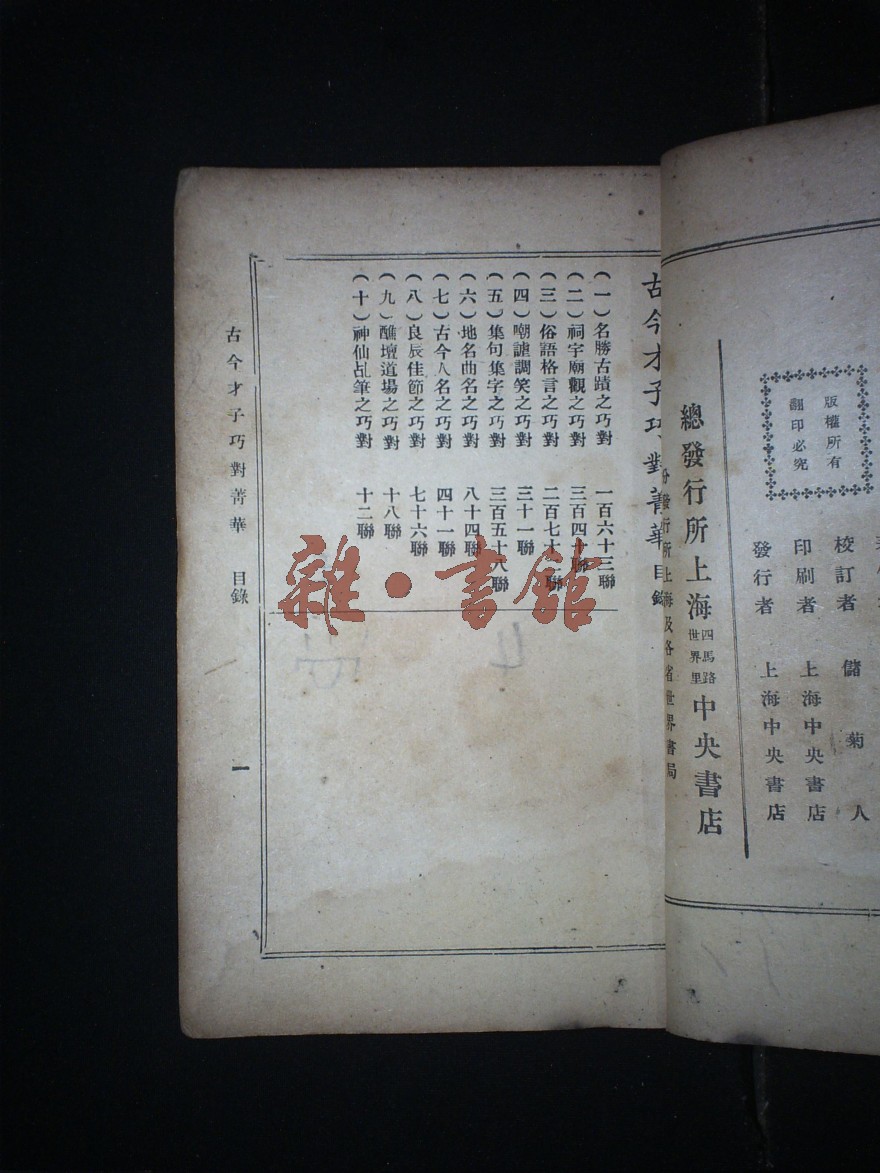 版權所有
翻印必究
校訂者 儲菊人
印刷者 上海中央書店
發行者 上海中央書店
總發行所上海四馬路世界里中央書店
分發行所上海及各省世界書局
古今才子巧對菁華目錄
(一)名勝古蹟之巧對 一百六十三聯
(二)祠宇廟觀之巧對 三百四十聯
(三)俗語格言之巧對 二百七十聯
(四)嘲謔調笑之巧對 三十一聯
(五)集句集字之巧對 三百五十八聯
(六)地名曲名之巧對 八十四聯
(七)古今人名之巧對 四十一聯
(八)良辰佳節之巧對 七十六聯
(九)醮壇道場之巧對 十八聯
(十)神仙乩筆之巧對 十二聯
古今才子巧對菁華 目錄
一
雜·書館